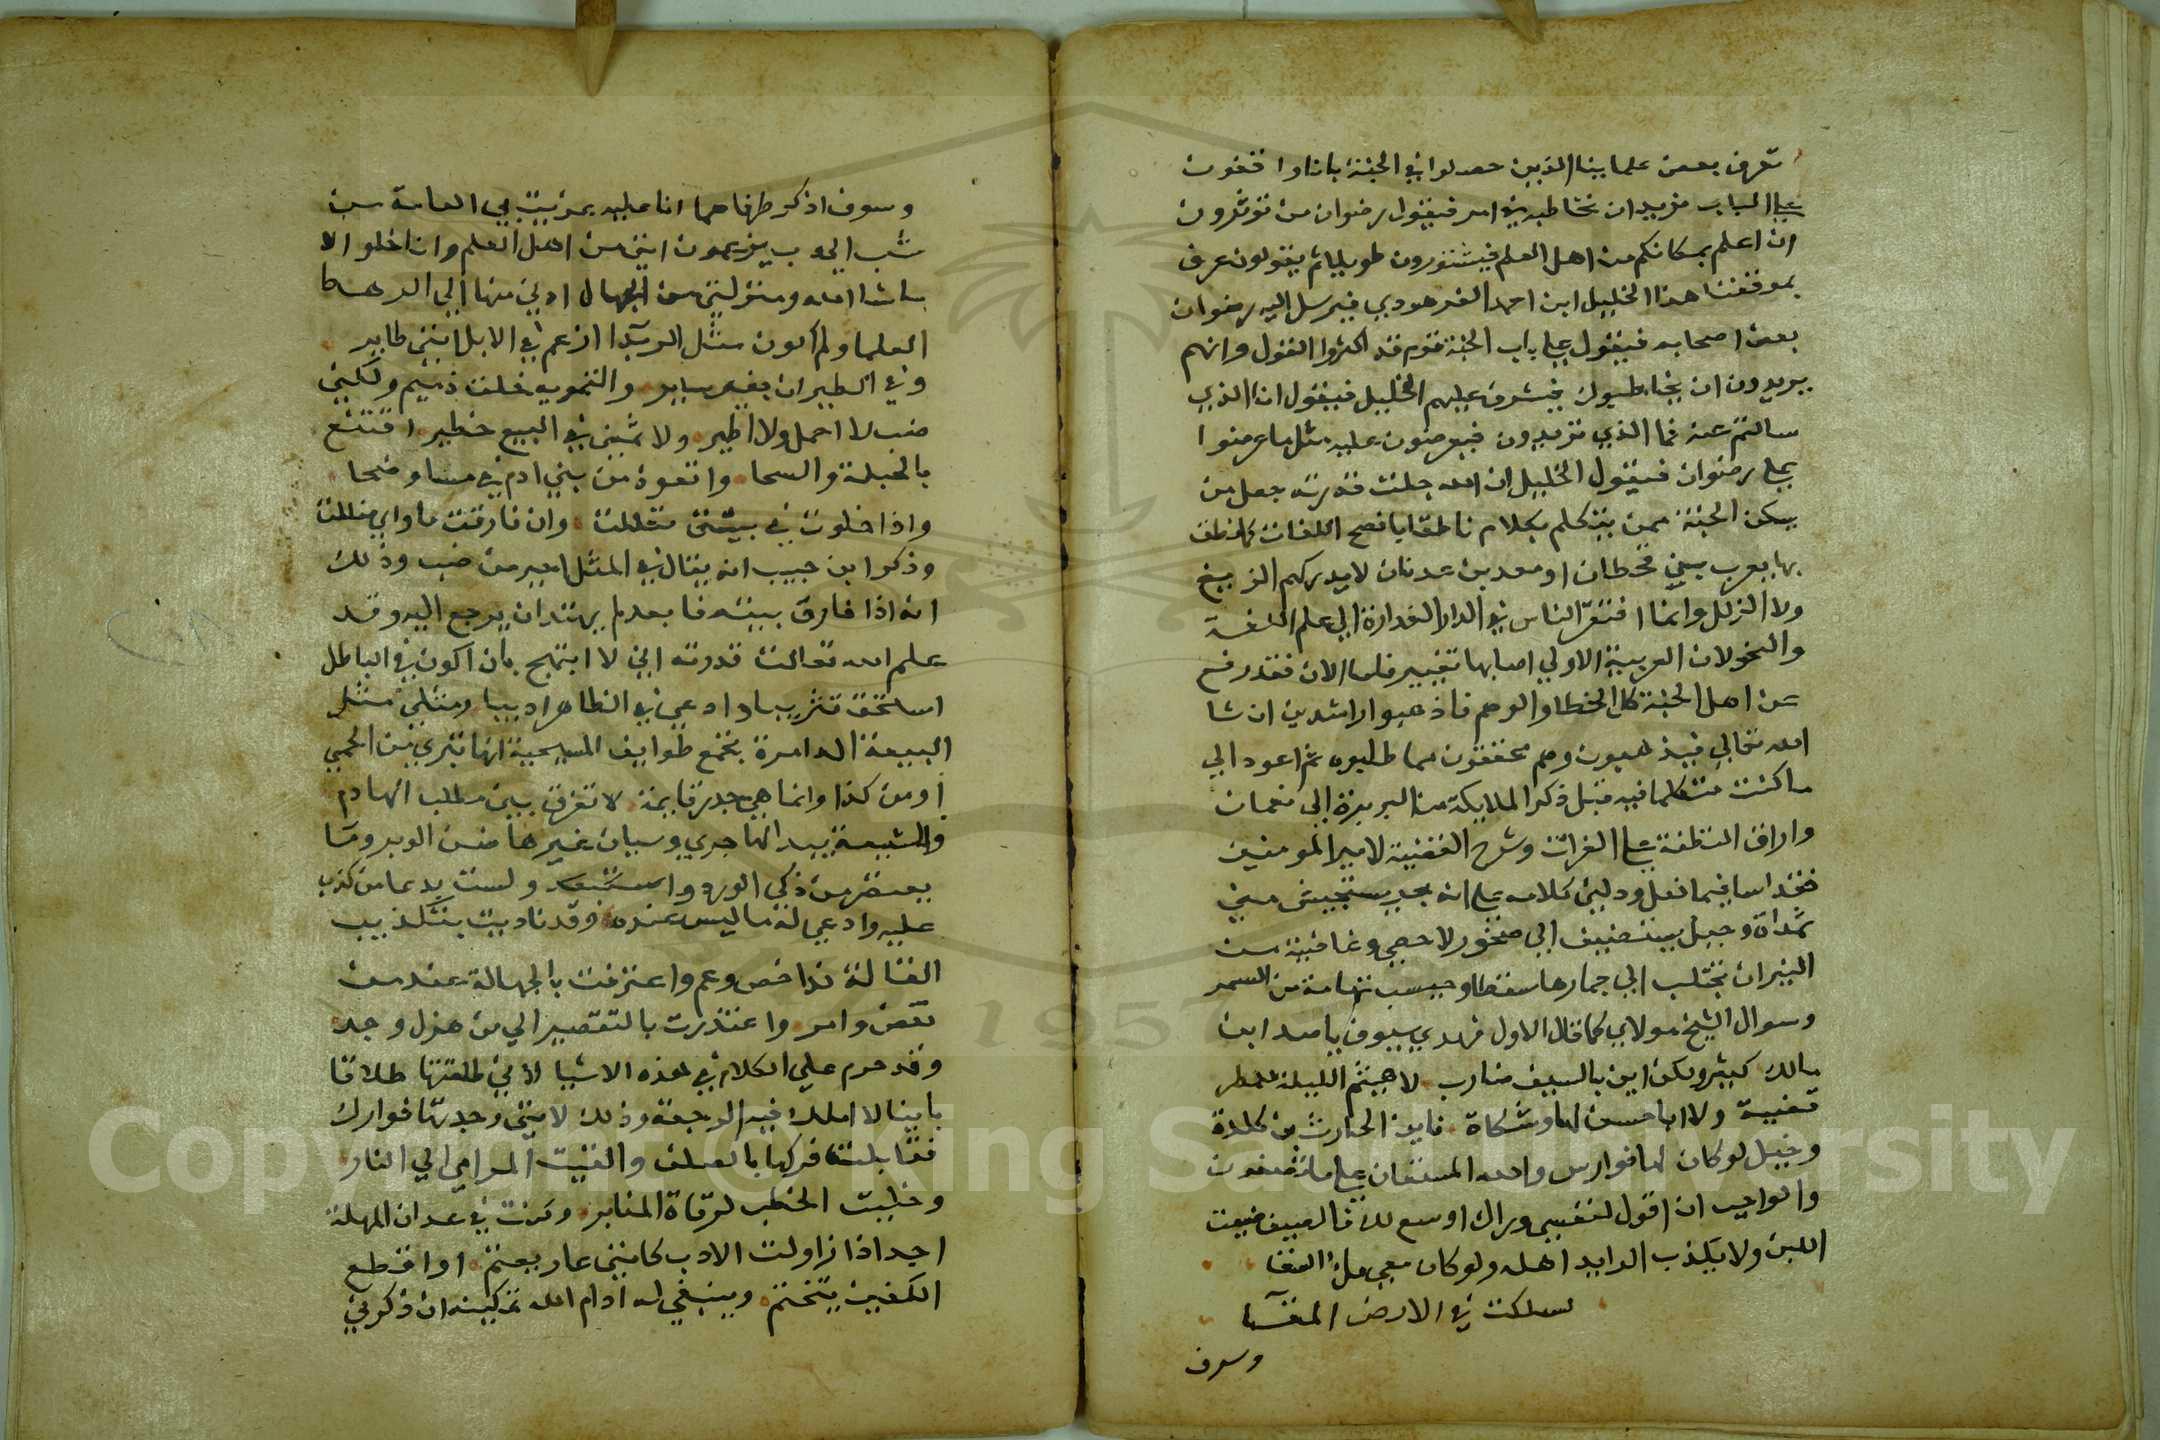 تعرف بعض علماينا الذين حصلوا في الجنة باننا واقفون
علي الباب نريد ان نخاطبه في امر فيقول رضوان من توثرون
ان اعلم بمكانكم من اهل العلم فيشتورون طويلا ثم يقولون عرف
بموقفنا هذا الخليل ابن احمد الفرهودي فيرسل اليه رضوان
بعض اصحابه فيقول علي باب الجنة قوم قد اكثروا القول وانهم
يريدون ان يخاطبوك فيشرف عليهم الخليل فيقول انا الذي
سالتم عنه فما الذي تريدون فيعرضون عليه مثل ما عرضوا
علي رضوان فيقول الخليل ان الله جلت قدرته جعل من
يسكن الجنة ممن يتكلم بكلام ناطقا بافصح اللغات كما نطق
بها يعرب بني قحطان او معد بن عدنان لا يدركهم الزيغ
ولا الزلل وانما افتقر الناس في الدار الغدارة الي علم اللغة
والنحو لان العربية الاولي اصابها تغيير فاما الان فقد رفع
عن اهل الجنة كل الخطا والوهم فاذهبوا راشدين ان شا
الله تعالي فيذهبون وهم مخفقون مما طلبوه ثم اعود الي
ما كنت متكلما فيه قبل ذكر الملايكة من البريرة الي نعمان
واراق النطفة علي الفرات وشرح القضية لامير المومنين
فقد اسا فيما فعل ودلني كلامه علي انه بحر يستجيش مني
ثمدا وجبل يستضيف الي صخور لا حصي وغاضية من
النيران تجتلب الي جمارها سقطا وحسب تهامة من السمر
وسوال الشيخ مولاي كما قال الاول فهدي سيوف يا صد ابن
مالك كثير ولكن اين بالسيف ضارب لا هيثم الليلة للمطي
قضية ولا ابا حسن لها وشكاة فاين الحارث بن كلدة
وخيل لو كان لها فوارس والله المستعان علي ما تصفون
والواجب ان اقول لنفسي وراك اوسع لك فالصيف ضيعت
اللبن ولا يكذب الرايد اهله ولو كان معي ملؤ السقا
لسلكت في الارض المقا
وسوف
وسوف اذكر طرفا مما انا عليه عزيت في العامة من
شب الي دب يزعمون انني من اهل العلم وانا خلو الا
ما شا الله ومنزلتي من الجهال ادني منها الي الرهط
العلما ولم اكون مثل الربدا ازعم في الابل انني طاير
وفي الطير ان بعير ساير والتمويه خلق ذميم ولكني
ضب لا احمل ولا اطير ولا ثمني في البيع خطير اقتنع
بالحبلة والسحا واتعوذ من بني ادم في مسا وضحا
واذا خلوت في بيتي تعللت وان فارقت ماواي ضللت
وذكر ابن حبيب انه يقال في المثل احير من ضب وذلك
انه اذا فارق بيته فابعد لم يهتد ان يرجع اليه وقد
علم الله تعالت قدرته اني لا ابتهج بان اكون في الباطل
استحق تثريبا وادعي في الظاهر اديبا ومثلي مثل
البيعة الدامرة تجمع طوايف المسيحية انها تبري من الحمي
او من كذا وانما هي جدر قايمة لا تفرق بين مطلب الهادم
والمشيمة بيد الهاجري وسيان عندها صن الوبر وما
يعتصر من ذكي الورد ولست بدعا من كذب
عليه وادعي له ما ليس عنده وقد ناديت بتكذيب
القالة نداخص وعم واعترفت بالجهالة عند من
نقص وامر واعتذرت بالتقصير الي من هزل وجد
وقد حرم علي الكلام في هذه الاشيا لاني طلقتها طلاقا
باينا لا املك فيه الرجعة وذلك لانني وجدتها فوارك
فقابلت فركها بالصلف والقيت المرامي الي النار
وخليت الخطب لرقاة المنابر وكنت في عدان المهلة
اجد اذا زاولت الادب كانني عار يعتم او اقطع
الكفين يتختم وينبغي له ادام الله تمكينه ان ذكرني